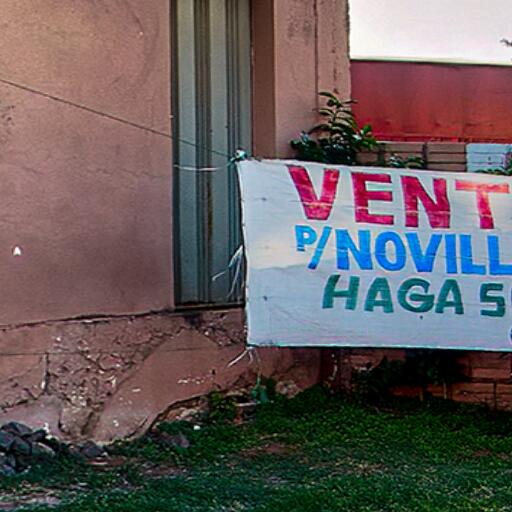 VENT
P/NOVILL
HAGA S